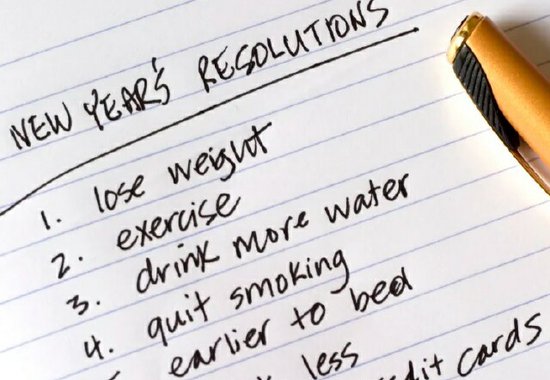 NEW YEAR'S RESOLUTIONS
1. lose weight
2. exercise
3. drink more water
4. quit smoking
earlier to bed
less
cards